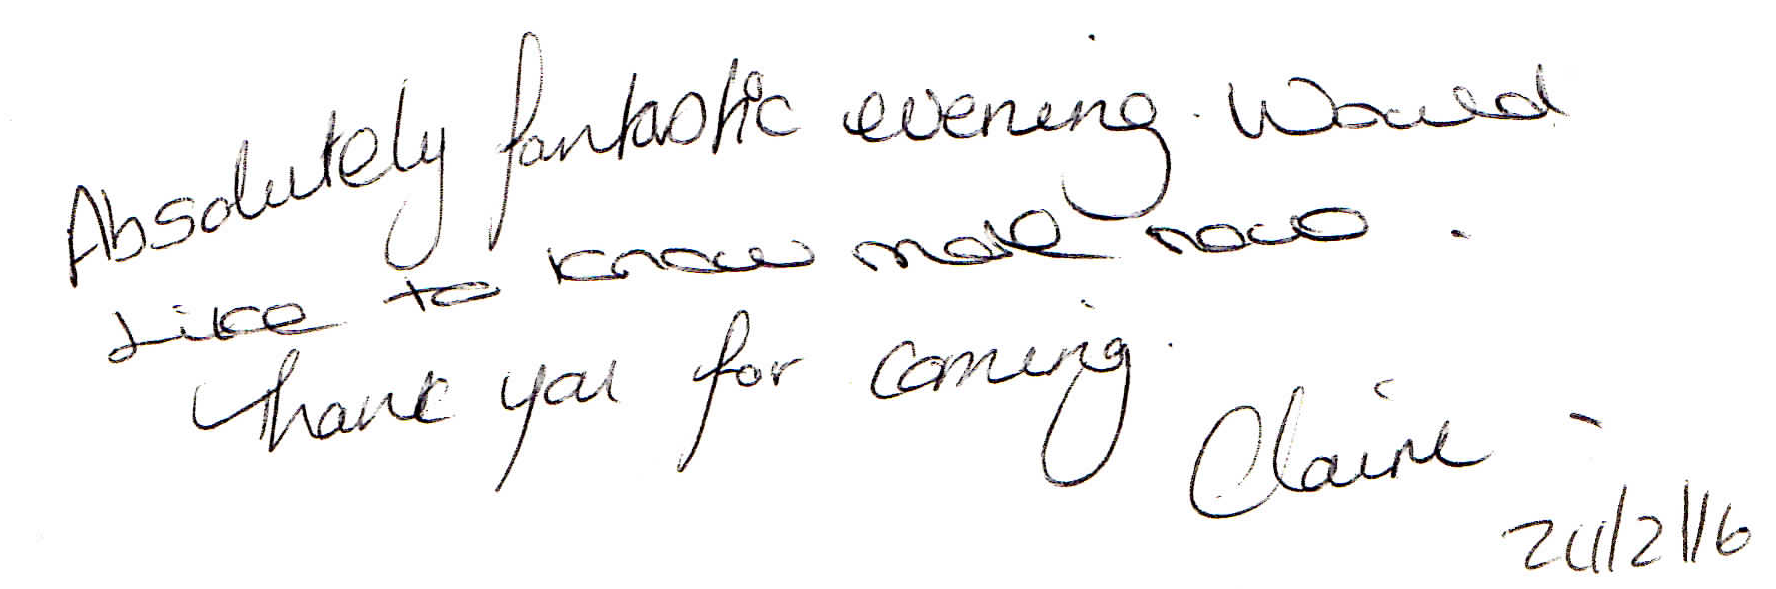 Absolutely fantastic evening. Would
Like to know more now.
Thank you for coming.
Claire
24/2/16